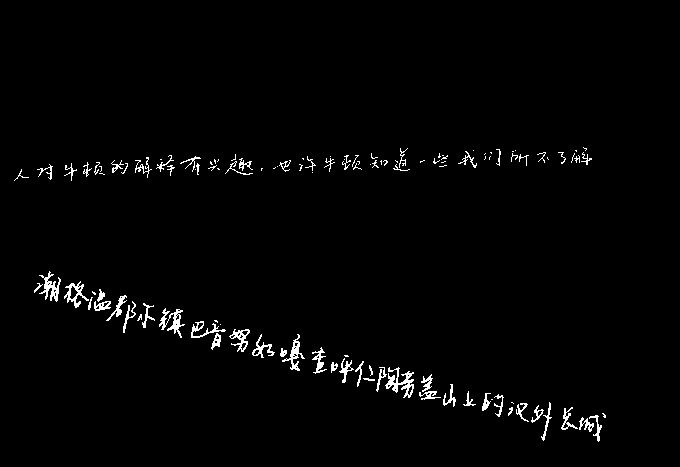 人对牛顿的解释有兴趣，也许牛顿知道一些我们所不了解
潮格温都尔镇巴音努如嘎查呼仁陶勒盖山上的汉外长城